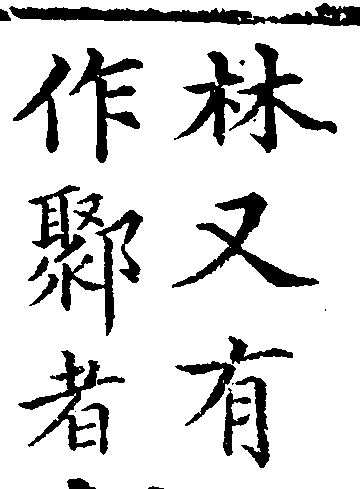 林又有
作鄹者